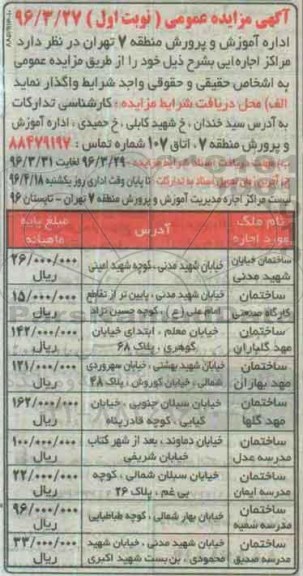 آگهی مزایده عمومی ( نوبت اول ) ۹۶/۳/۲۷
اداره آموزش و پرورش منطقه ۷ تهران در نظر دارد
مراکز اجاره‌ایی بشرح ذیل خود را از طریق مزایده عمومی
به اشخاص حقیقی و حقوقی واجد شرایط واگذار نماید
الف) محل دریافت شرایط مزایده : کارشناسی تدارکات
به آدرس سید خندان ، خ شهید کابلی ، خ حمیدی ، اداره آموزش
و پرورش منطقه ۷ ، اتاق ۱۰۷ شماره تماس : ۸۸۴۷۹۱۹۷
دریافت اسناد شرایط مزایده : ۹۶/۳/۲۹ لغایت ۹۶/۳/۳۱
اسناد به تدارکات تا پایان وقت اداری روز یکشنبه ۹۶/۴/۱۸
لیست مراکز اجاره مدیریت آموزش و پرورش منطقه ۷ تهران - تابستان ۹۶
نام ملک مورد اجاره آدرس مبلغ پایه ماهیانه
ساختمان خیابان شهید مدنی خیابان شهید مدنی ، کوچه شهید امینی ۲۶/۰۰۰/۰۰۰ ریال
ساختمان کارگاه صنعتی خیابان شهید مدنی ، پایین تر از تقاطع امام علی (ع) ، کوچه حسین نژاد ۱۵/۰۰۰/۰۰۰ ریال
ساختمان مهد گلباران خیابان معلم ، ابتدای خیابان گوهری ، پلاک ۶۸ ۱۴۲/۰۰۰/۰۰۰ ریال
ساختمان مهد بهاران خیابان شهید بهشتی ، خیابان سهروردی شمالی ، خیابان کوروش ، پلاک ۴۸ ۱۲۱/۰۰۰/۰۰۰ ریال
ساختمان مهد گلها خیابان سبلان جنوبی ، خیابان کیایی ، کوچه قادر پناه ۱۶۲/۰۰۰/۰۰۰ ریال
ساختمان مدرسه عدل خیابان دماوند ، بعد از شهر کتاب خیابان شریفی ۱۰۰/۰۰۰/۰۰۰ ریال
ساختمان مدرسه ایمان خیابان سبلان شمالی ، کوچه بی غم ، پلاک ۲۶ ۲۲/۰۰۰/۰۰۰ ریال
ساختمان مدرسه سمیه خیابان بهار شمالی ، کوچه طباطبایی ۹۶/۰۰۰/۰۰۰ ریال
ساختمان مدرسه صدیق خیابان شهید مدنی ، خیابان شهید محمودی ، بن‌بست شهید اکبری ۳۳/۰۰۰/۰۰۰ ریال